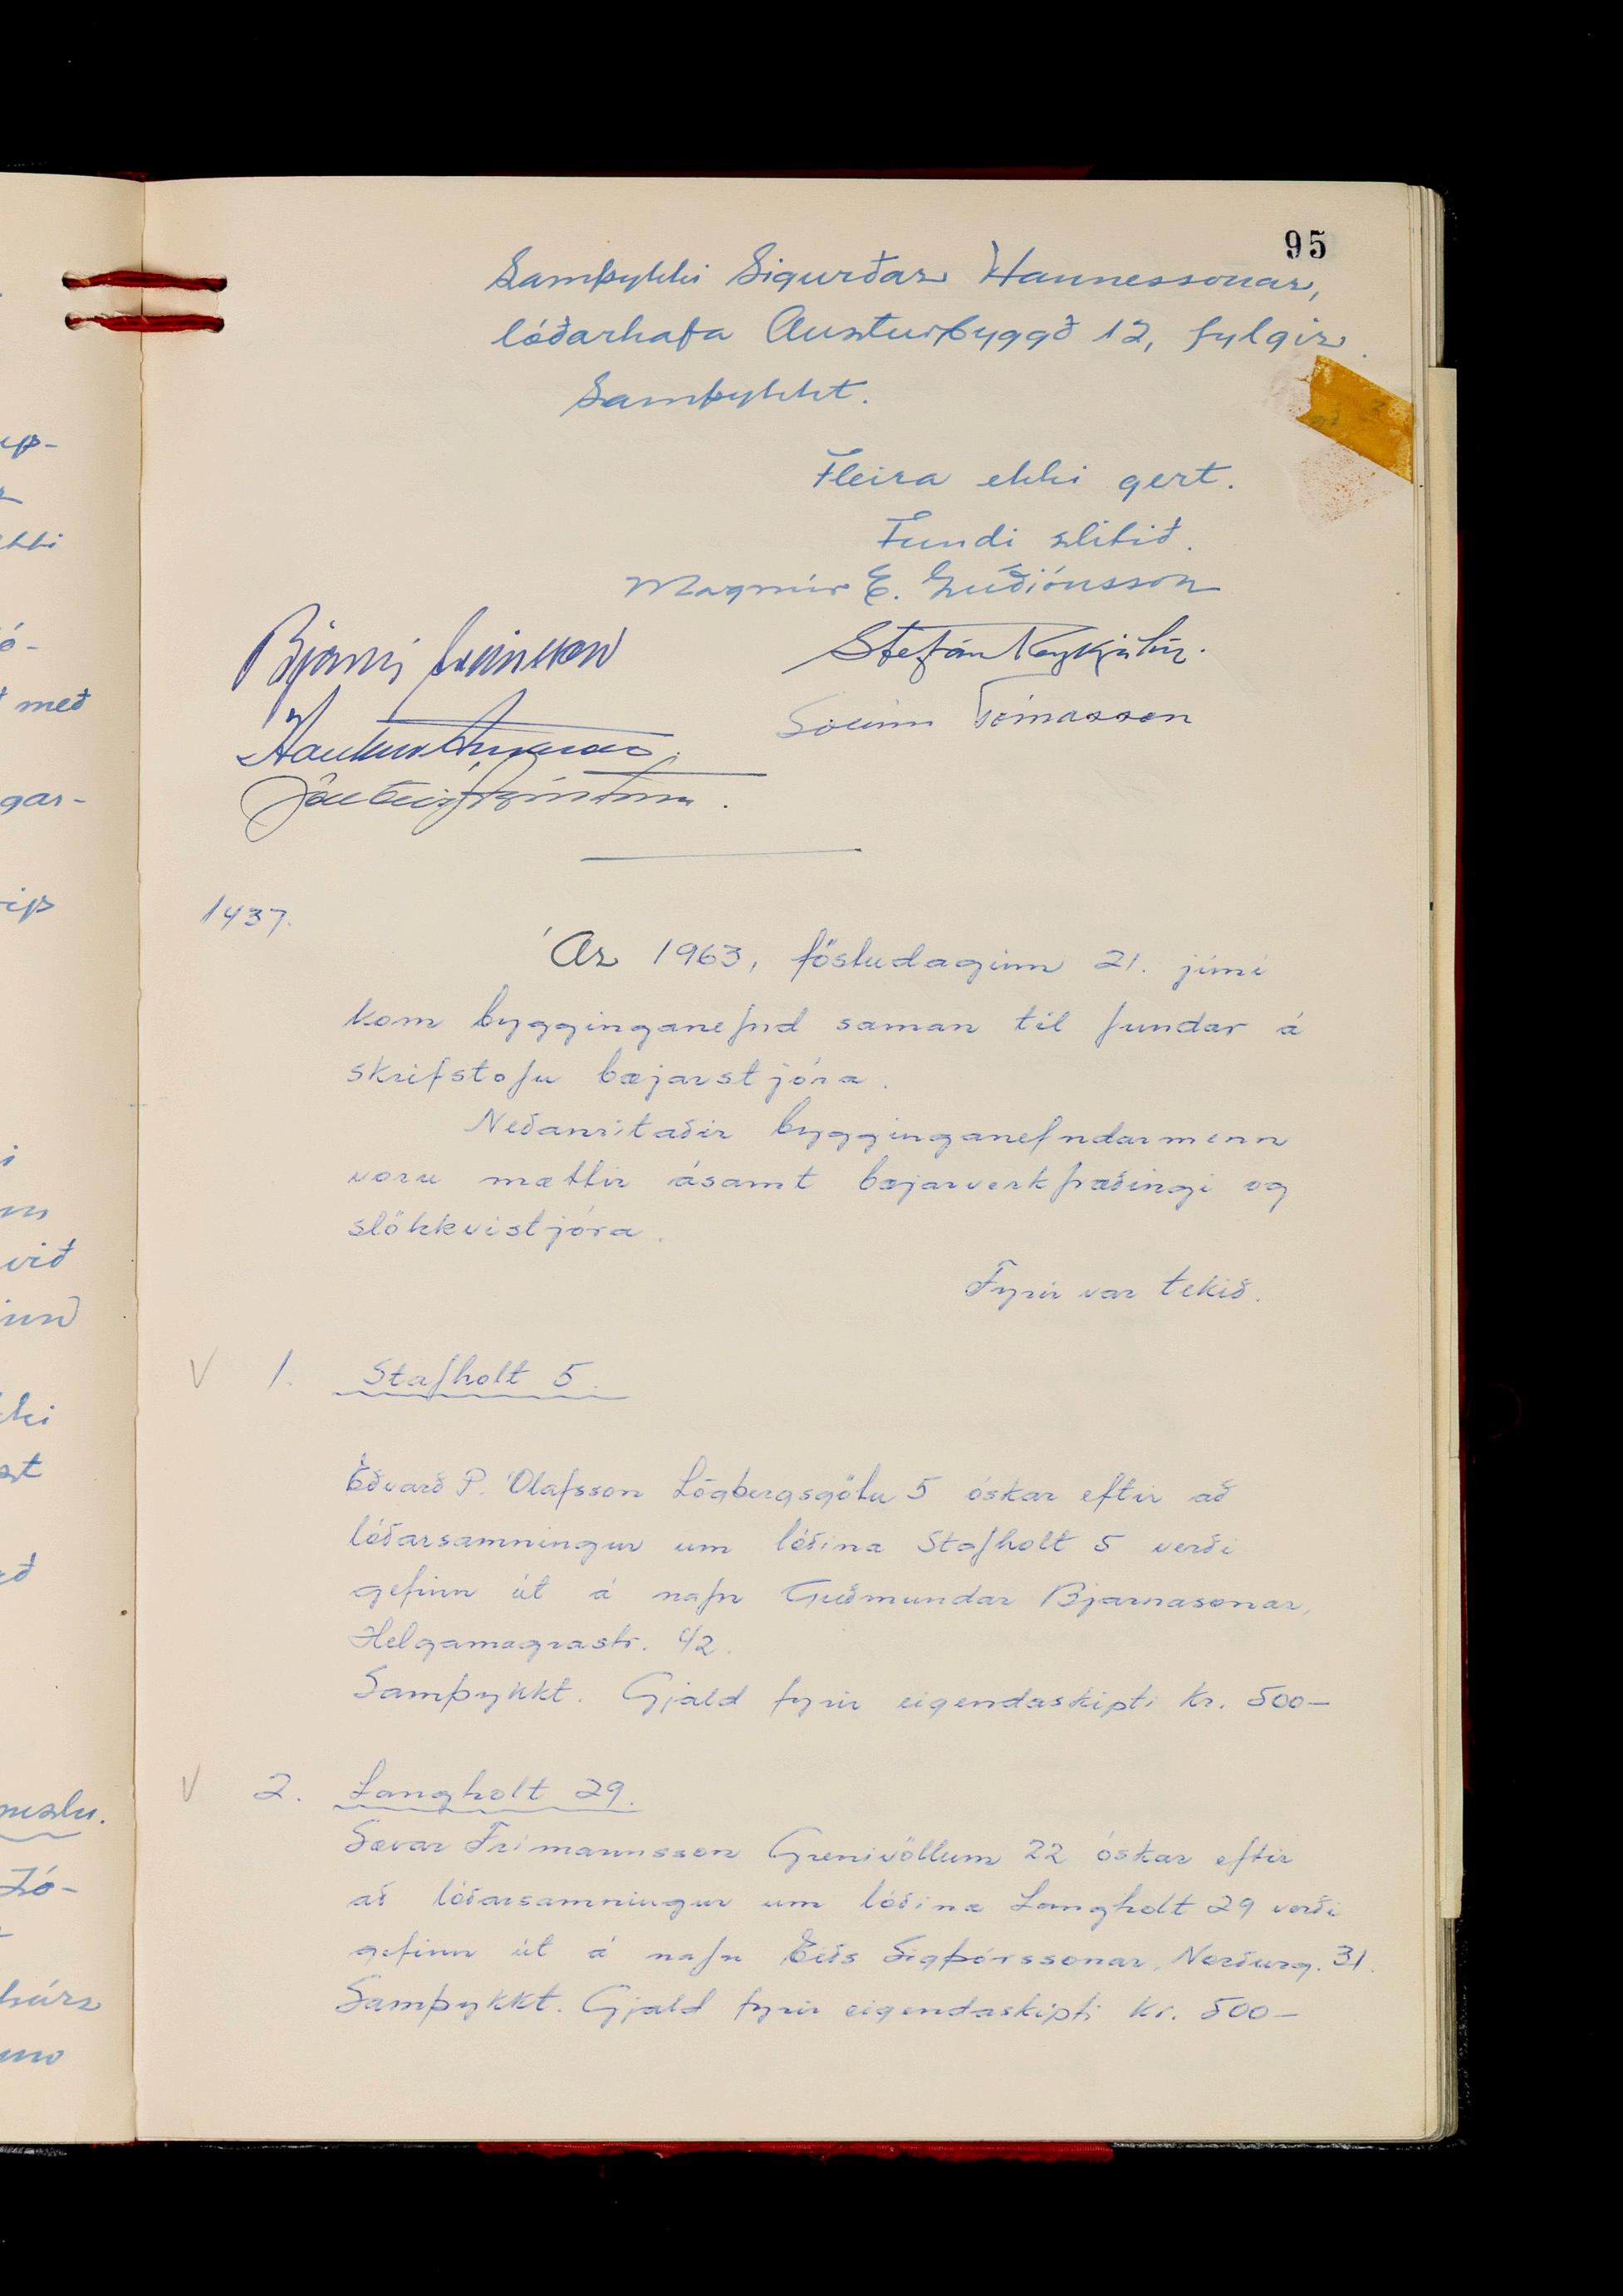 95
Samþykki Sigurðar Hannessonar,
lóðarhafa Austurbyggð 12, fylgir.
Samþykkt.
Fleira ekki gert.
Fundi slitið.
Magnús E. Guðjónsson
Bjarni Sveinsson
Stefán Reykjalín.
Haukur Árnason.
Sveinn Tómasson
Jón Geir Ágústsson.
1437.
Ár 1963, föstudaginn 21. júní
kom bygginganefnd saman til fundar á
skrifstofu bæjarstjóra.
Neðanritaðir bygginganefndarmenn
voru mættir ásamt bæjarverkfræðingi og
slökkvistjóra.
Fyrir var tekið.
V 1. Stafholt 5.
Eðvarð P. Ólafsson Lögbergsgötu 5 óskar eftir að
lóðarsamningur um lóðina Stafholt 5 verði
gefinn út á nafn Guðmundar Bjarnasonar,
Helgamagrastr. 42.
Samþykkt. Gjald fyrir eigendaskipti kr. 500—
V 2. Langholt 29.
Sævar Frímannsson Grenivöllum 22 óskar eftir
að lóðarsamningur um lóðina Langholt 29 verði
gefinn út á nafn Eiðs Sigþórssonar, Norðurg. 31.
Samþykkt. Gjald fyrir eigendaskipti kr. 500—
með
við